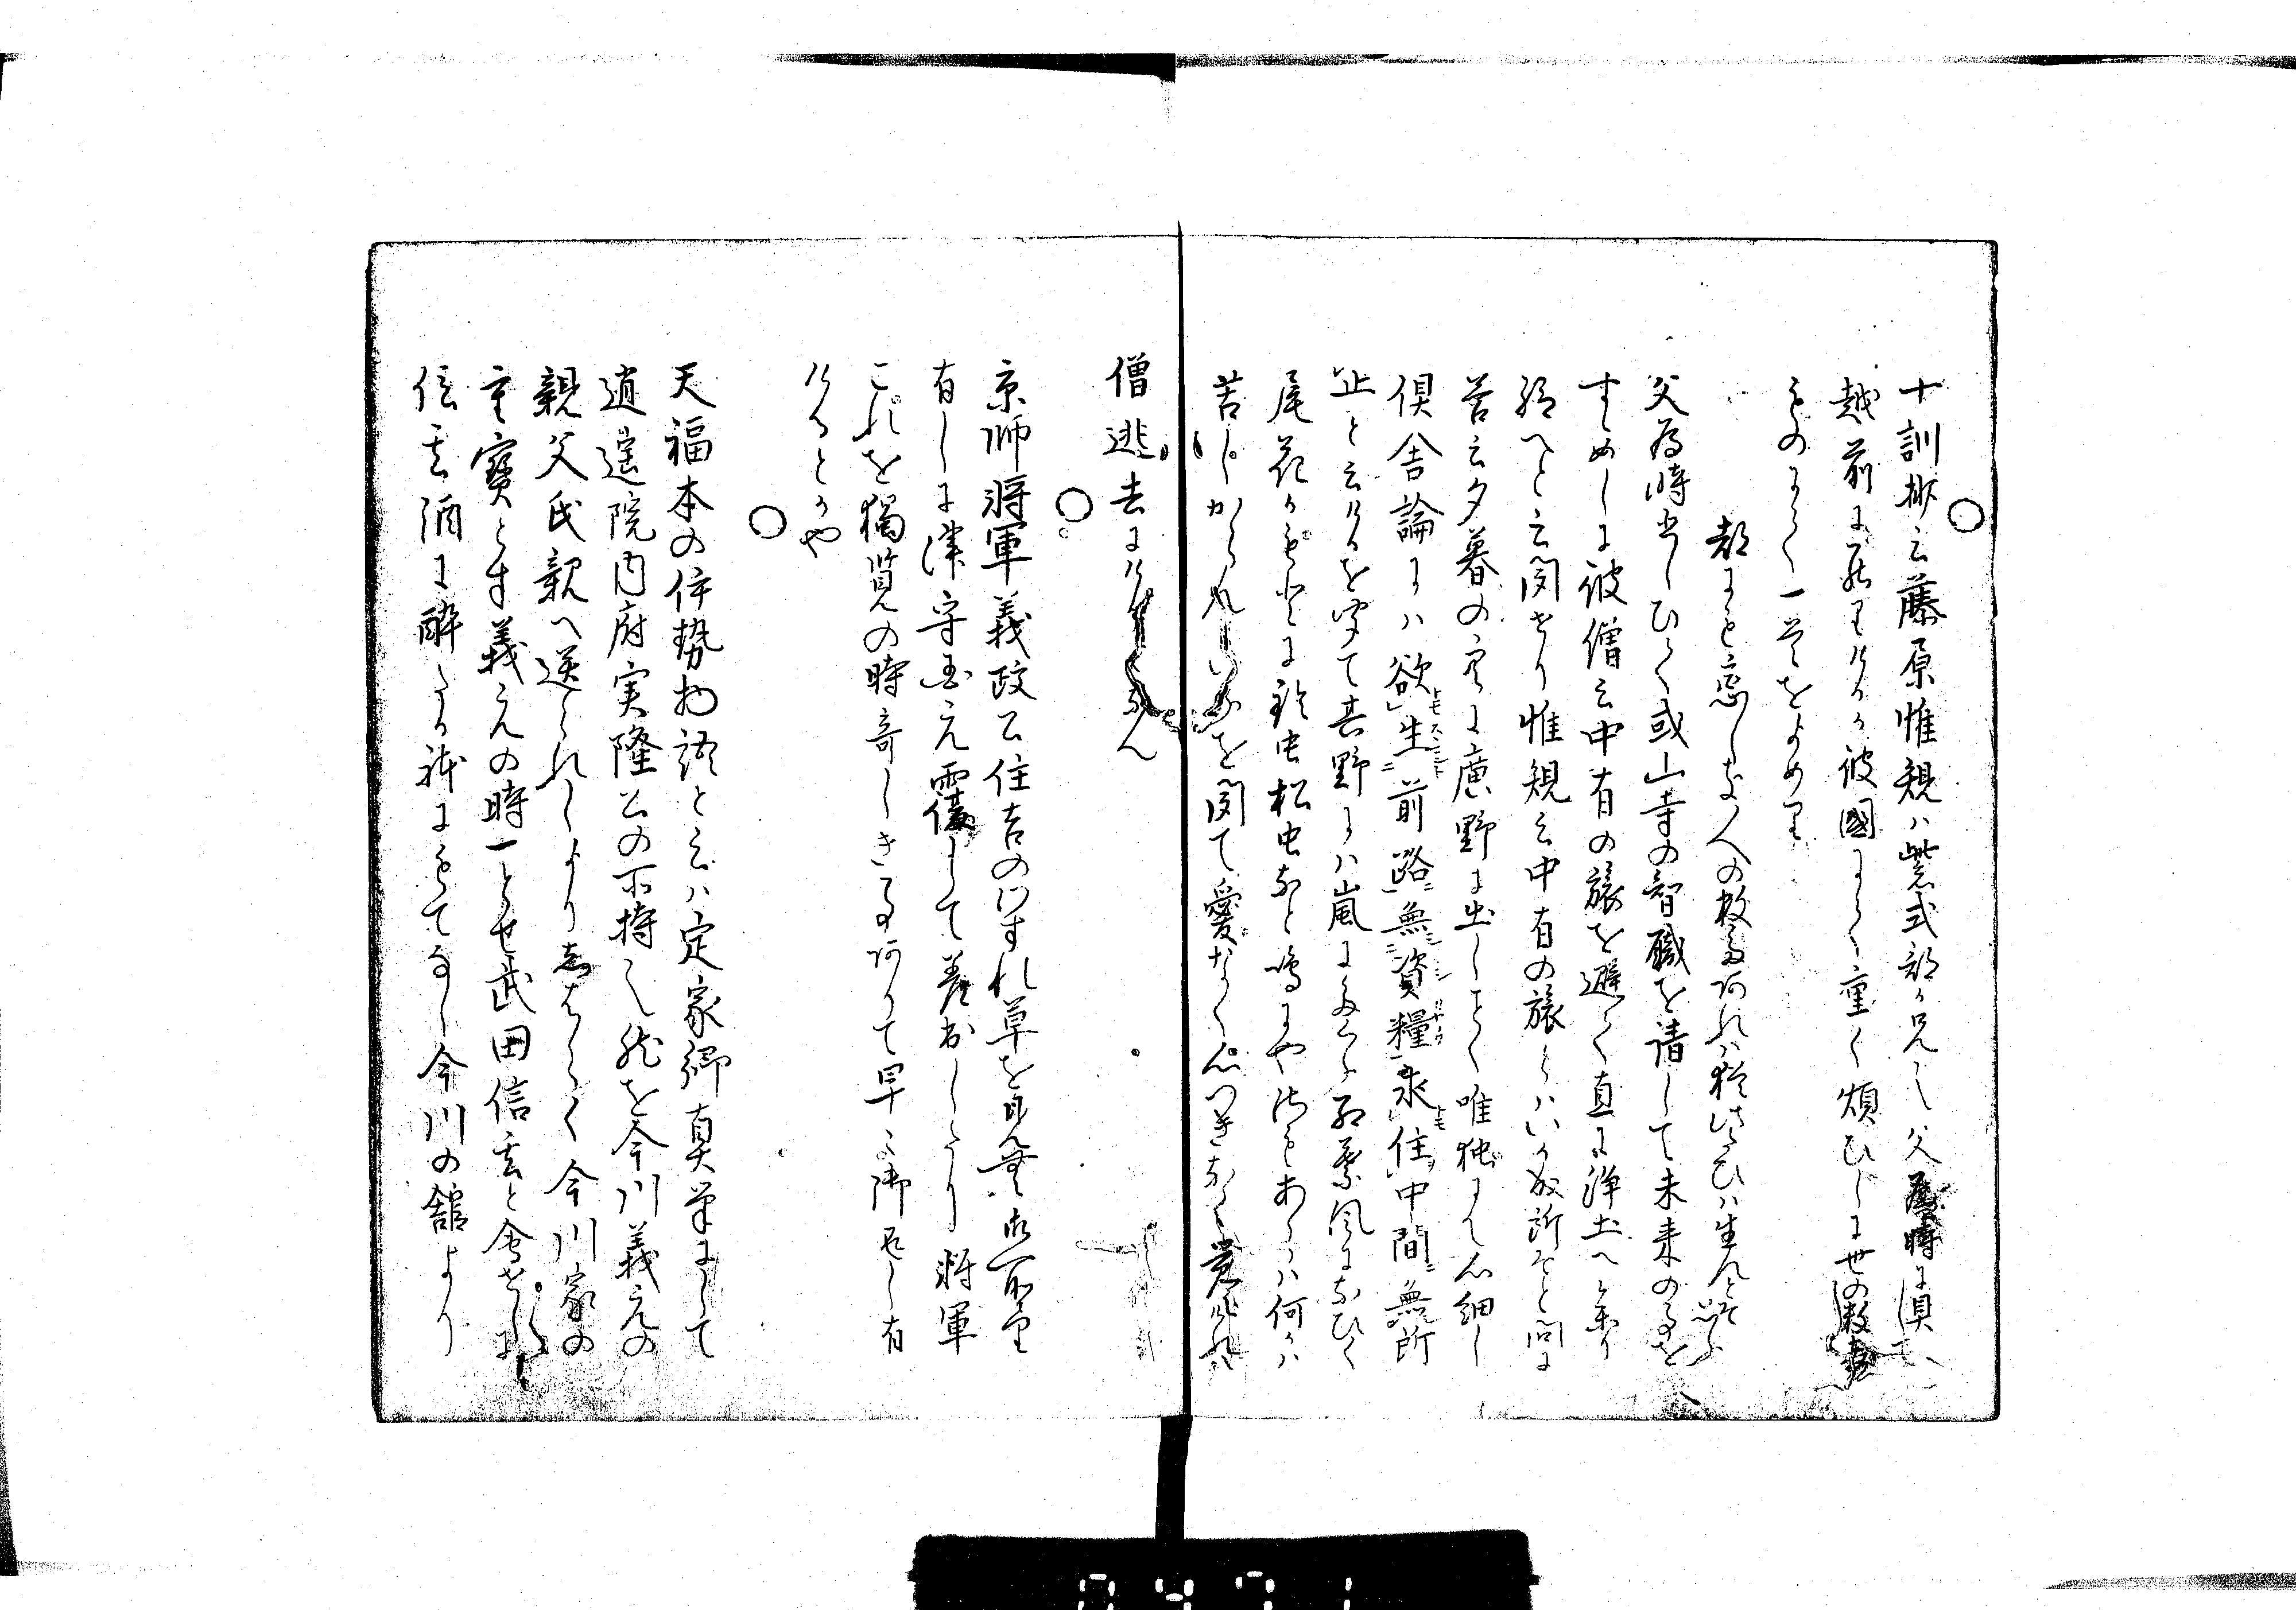 ○
十訓抄云藤原惟規ハ紫式部か兄也父為時に倶して
越前に下りけるか彼國にて重く煩ひしに世の
ものにて一首をよめり
都にも恋しき人の数多あれハ猶此たひハ生んと思ふ
父為時悲しひて或山寺の智職を請して未来の事を
すゝめしに彼僧云中有の旅を避て直に浄土へ参り
給へと云聞せり惟規云中有の旅とハいか成所そと問に
答云夕暮の空に廣野に出しことく唯独にて心細し
倶舎論にハ欲生前路無資糧求住中間無所
止と云けるを聞て其野にハ嵐にたくふ紅葉風になひく
尾花かもとに鈴虫松虫なと鳴にや御もあらハ何かハ
苦しかられんを聞て愛なく心つきなく覚けれハ
僧逃去にけるとなん
○
京師将軍義政公住吉のわすれ草を見
有しに津守國元霍して差出したり将軍
これを獨覧の時奇しき事ありて早々御返し有
けるとかや
○
天福本の伊勢物語と云ハ定家卿真筆にして
逍遥院内府実隆公の所持也然を今川義元の
親父氏親へ送られしより志はらく今川家の
重寳とす義元の時一とせ武田信玄と會せしに
信玄酒に酔たる躰にもてなし今川の舘より